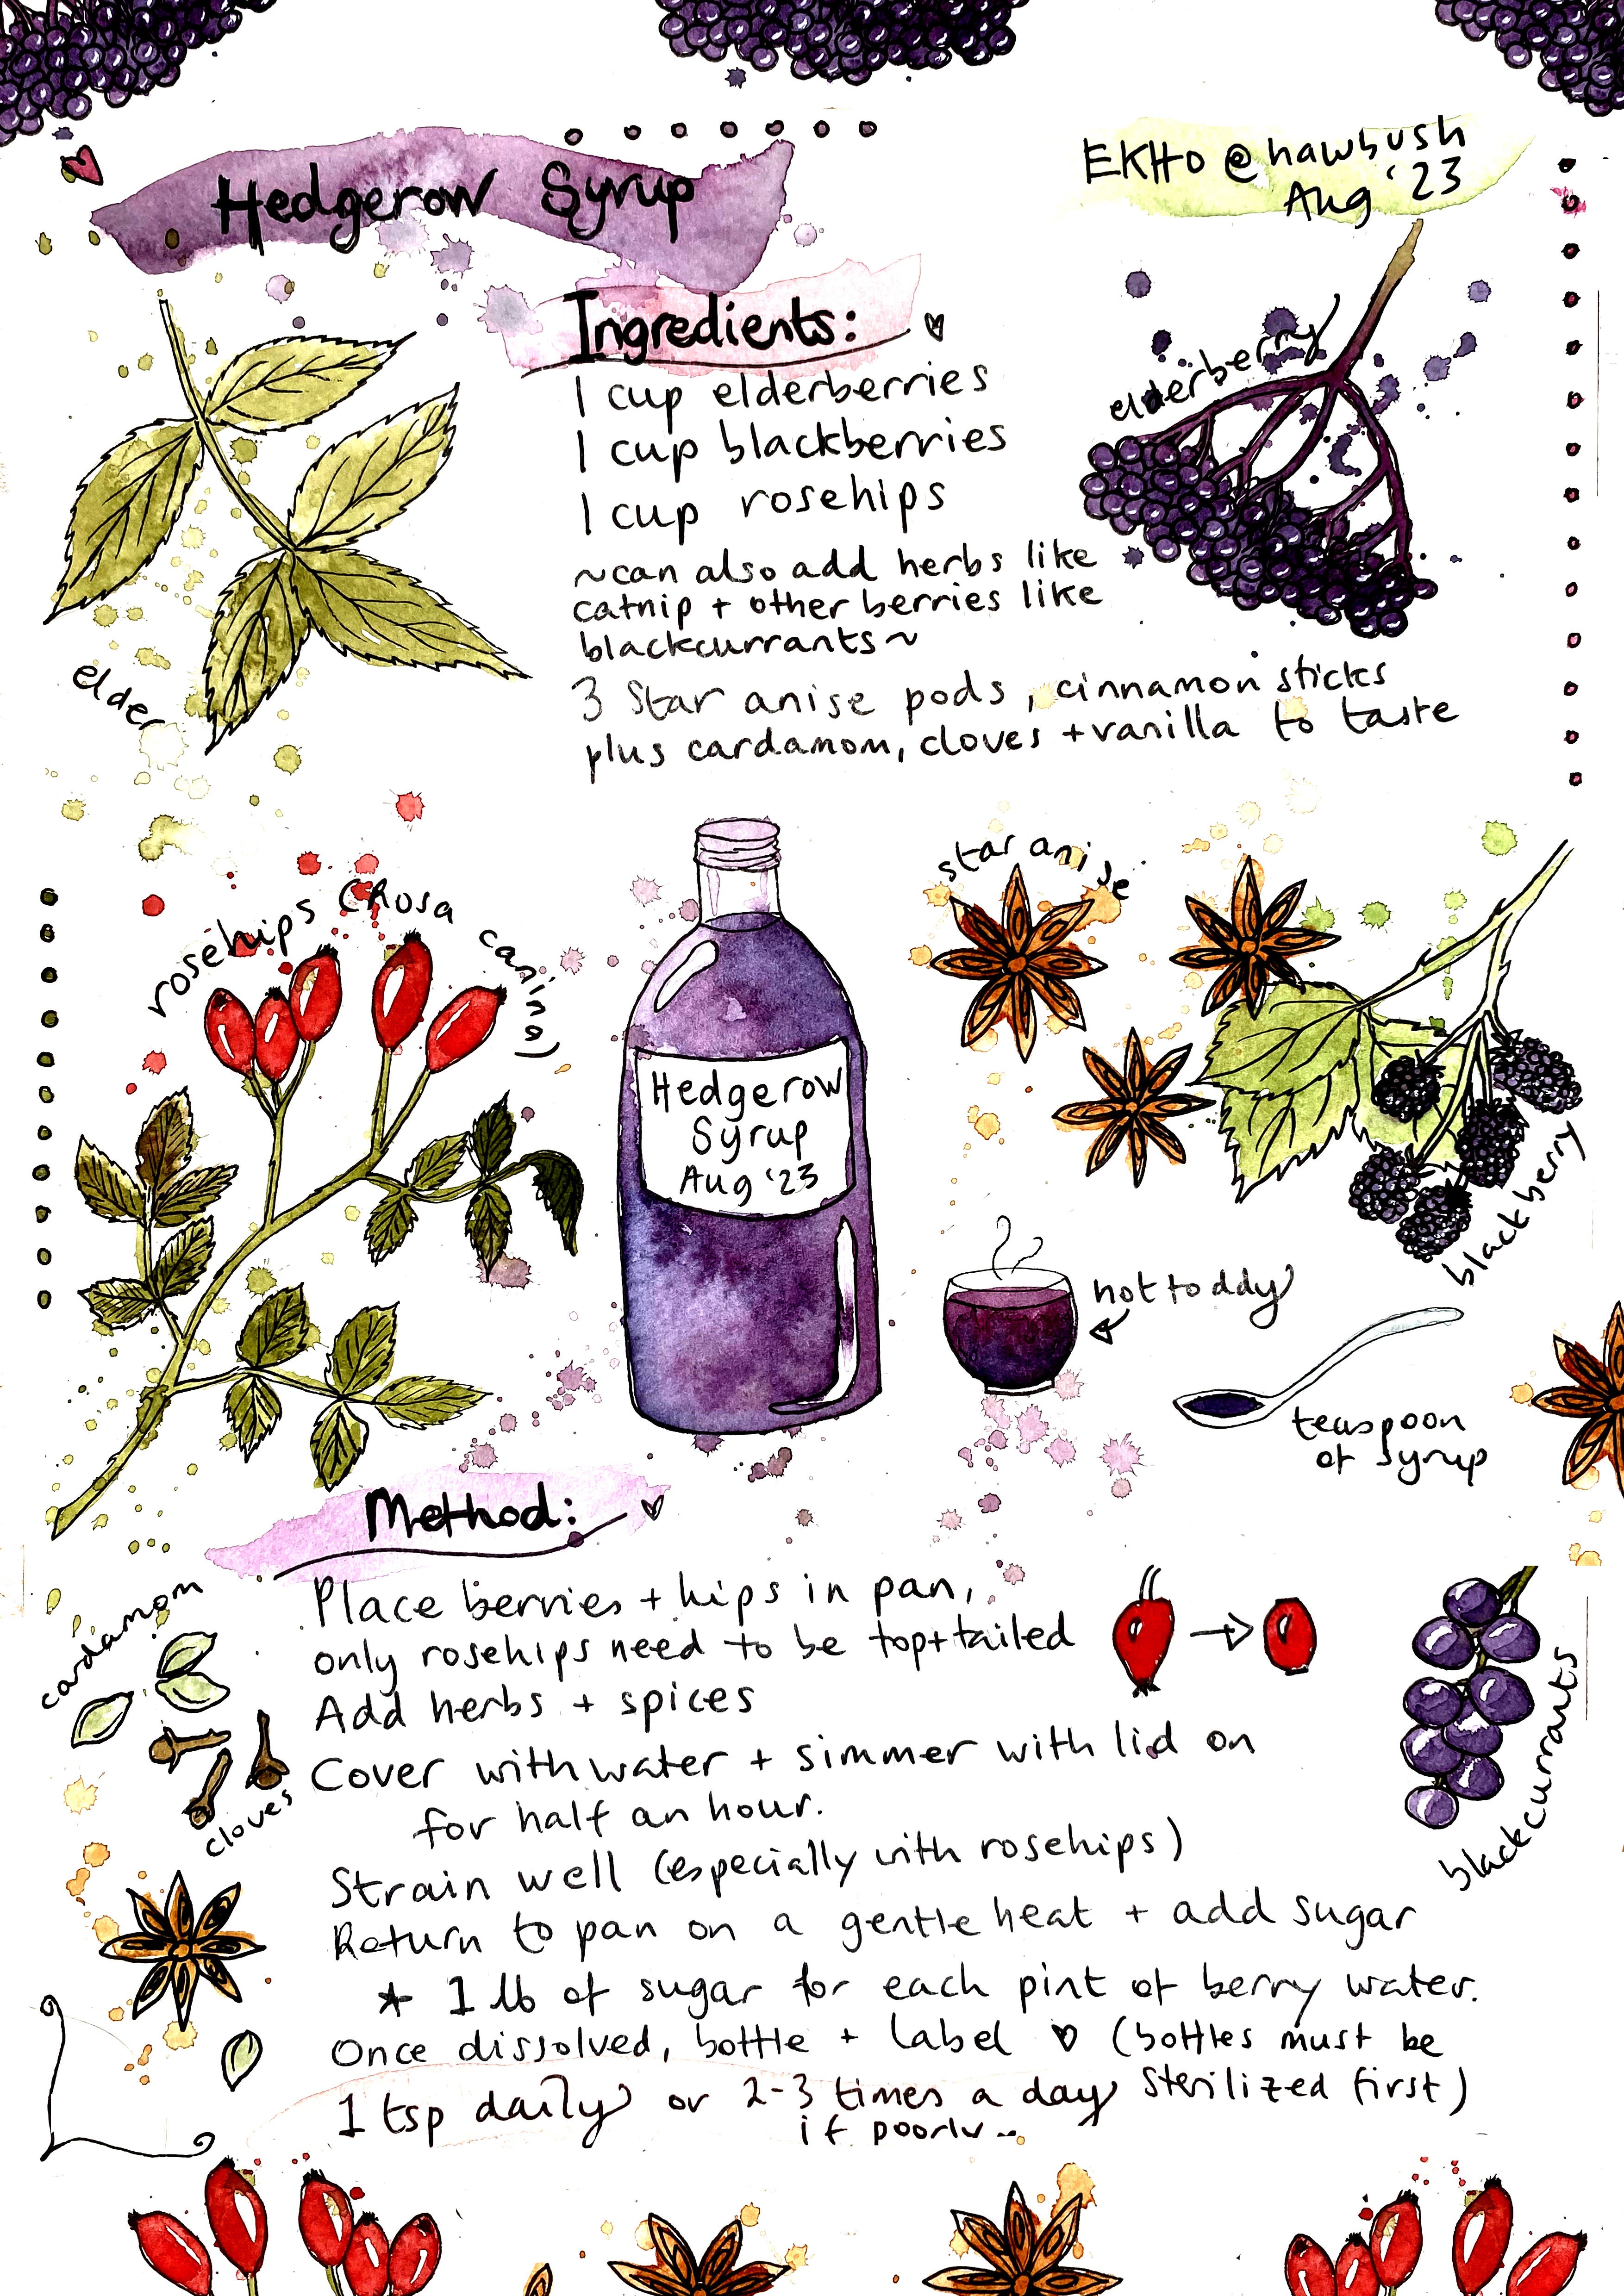 Hedgerow Syrup
EKHo @ hawbush
Aug '23
Ingredients:
1 cup elderberries
1 cup blackberries
1 cup rosehips
~can also add herbs like
catnip + other berries like
blackcurrants~
3 Star anise pods, cinnamon sticks
plus cardamom, cloves + vanilla to taste
elderberry
elder
rosehips (Rosa canina)
Hedgerow
Syrup
Aug '23
star anise
blackberry
hot toddy
teaspoon
of syrup
Method:
Place berries + hips in pan,
only rosehips need to be top+tailed
Add herbs + spices
Cover with water + simmer with lid on
for half an hour.
Strain well (especially with rosehips)
Return to pan on a gentle heat + add sugar
* 1 lb of sugar for each pint of berry water.
Once dissolved, bottle + label ♡ (bottles must be
sterilized first)
1 tsp daily or 2-3 times a day
if poorly..
cardamom
cloves
blackcurrants